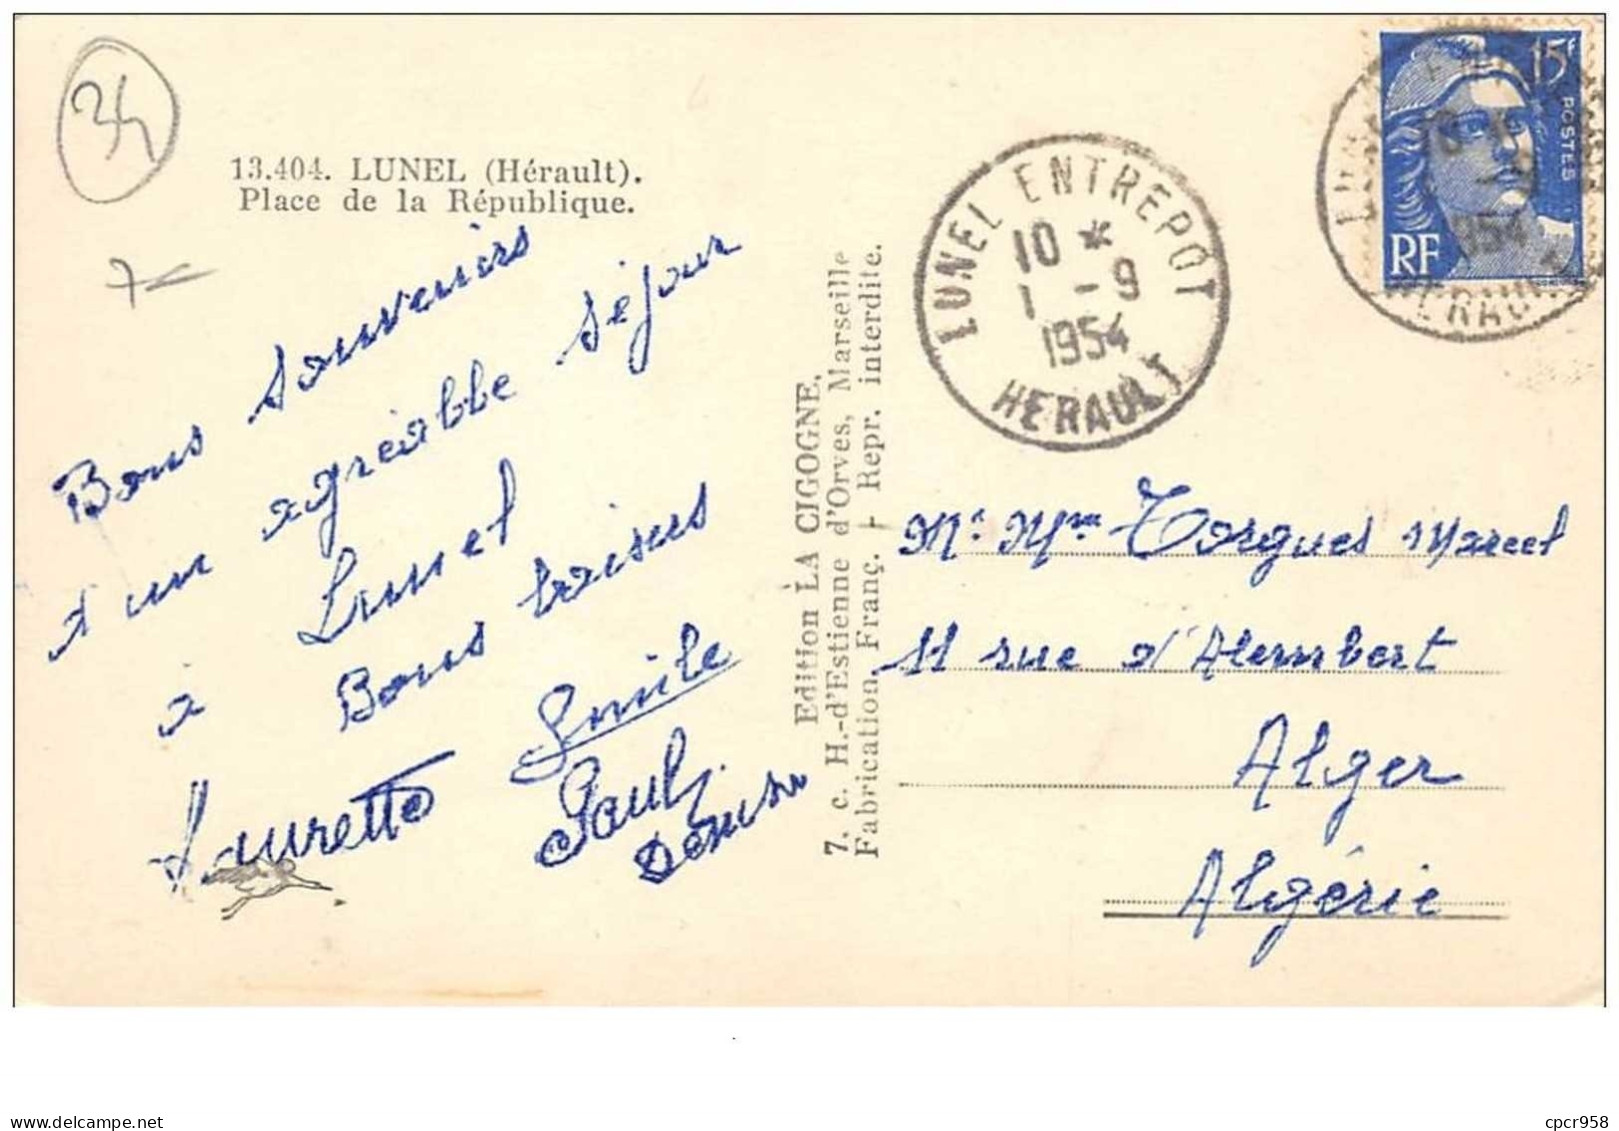 34
13.404. LUNEL (Hérault).
Place de la République.
7€
Bons souvenirs
d'un agréable séjour
à Lunel
Bons baisers
Emile
Laurette
Paul
Denise
Edition LA CIGOGNE,
7. c. H.-d'Estienne d'Orves, Marseille
Fabrication Franç. - Repr. interdite.
LUNEL ENTREPOT
10 *
1 -9
1954
HERAULT
15F
POSTES
RF
1954
HERAULT
Mr Mme Torgues Marcel
11 rue d'Alembert
Alger
Algérie
delcampe.net
cpcr958